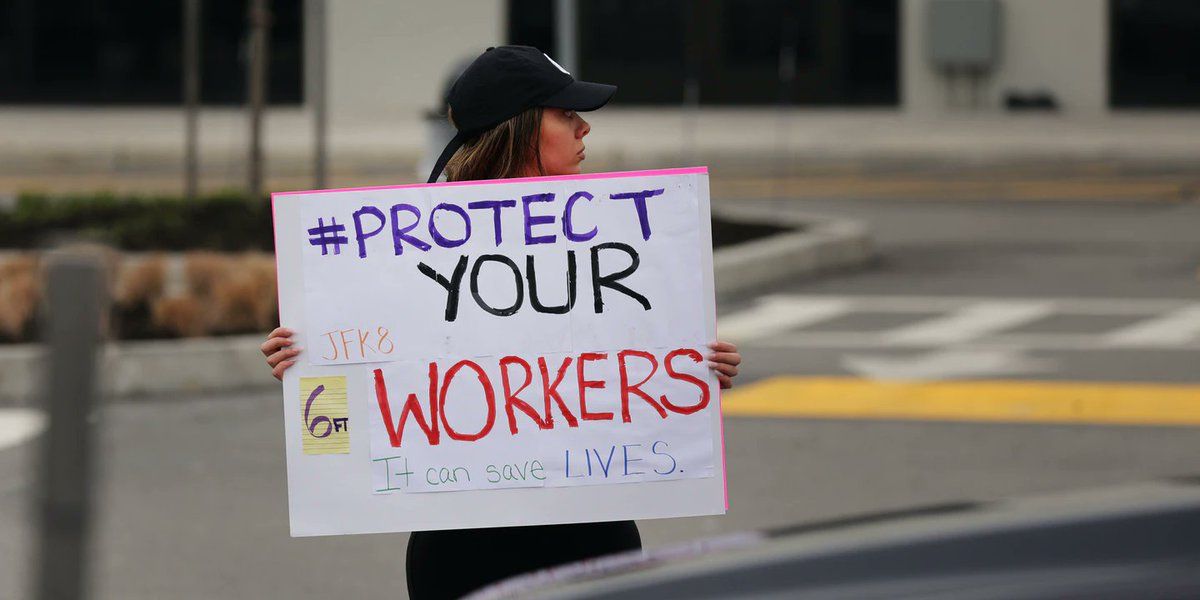 #PROTECT
YOUR
JFK8
WORKERS
6FT
It can save LIVES.